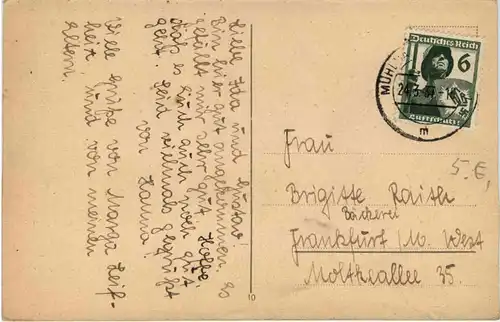 Liebe Ida und Gustav!
Bin hier gut angekommen, es
gefällt mir sehr gut. Hoffe,
daß es Euch auch noch gut
geht. Seid vielmals gegrüßt
von Hanna!
Viele Grüße von Marga Reif-
heit und von meinen
Eltern.
Deutsches Reich
6
Luftschutz
MÜHL
24.3.
m
Frau
Brigitte Raith
Bäckerei
Frankfurt/M. West
Moltkeallee 35.
5.€,
10